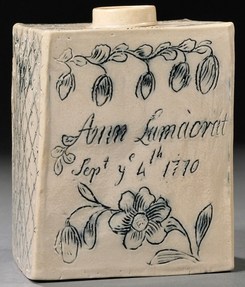 Ann Lumacrat
Sept ye 4th 1770